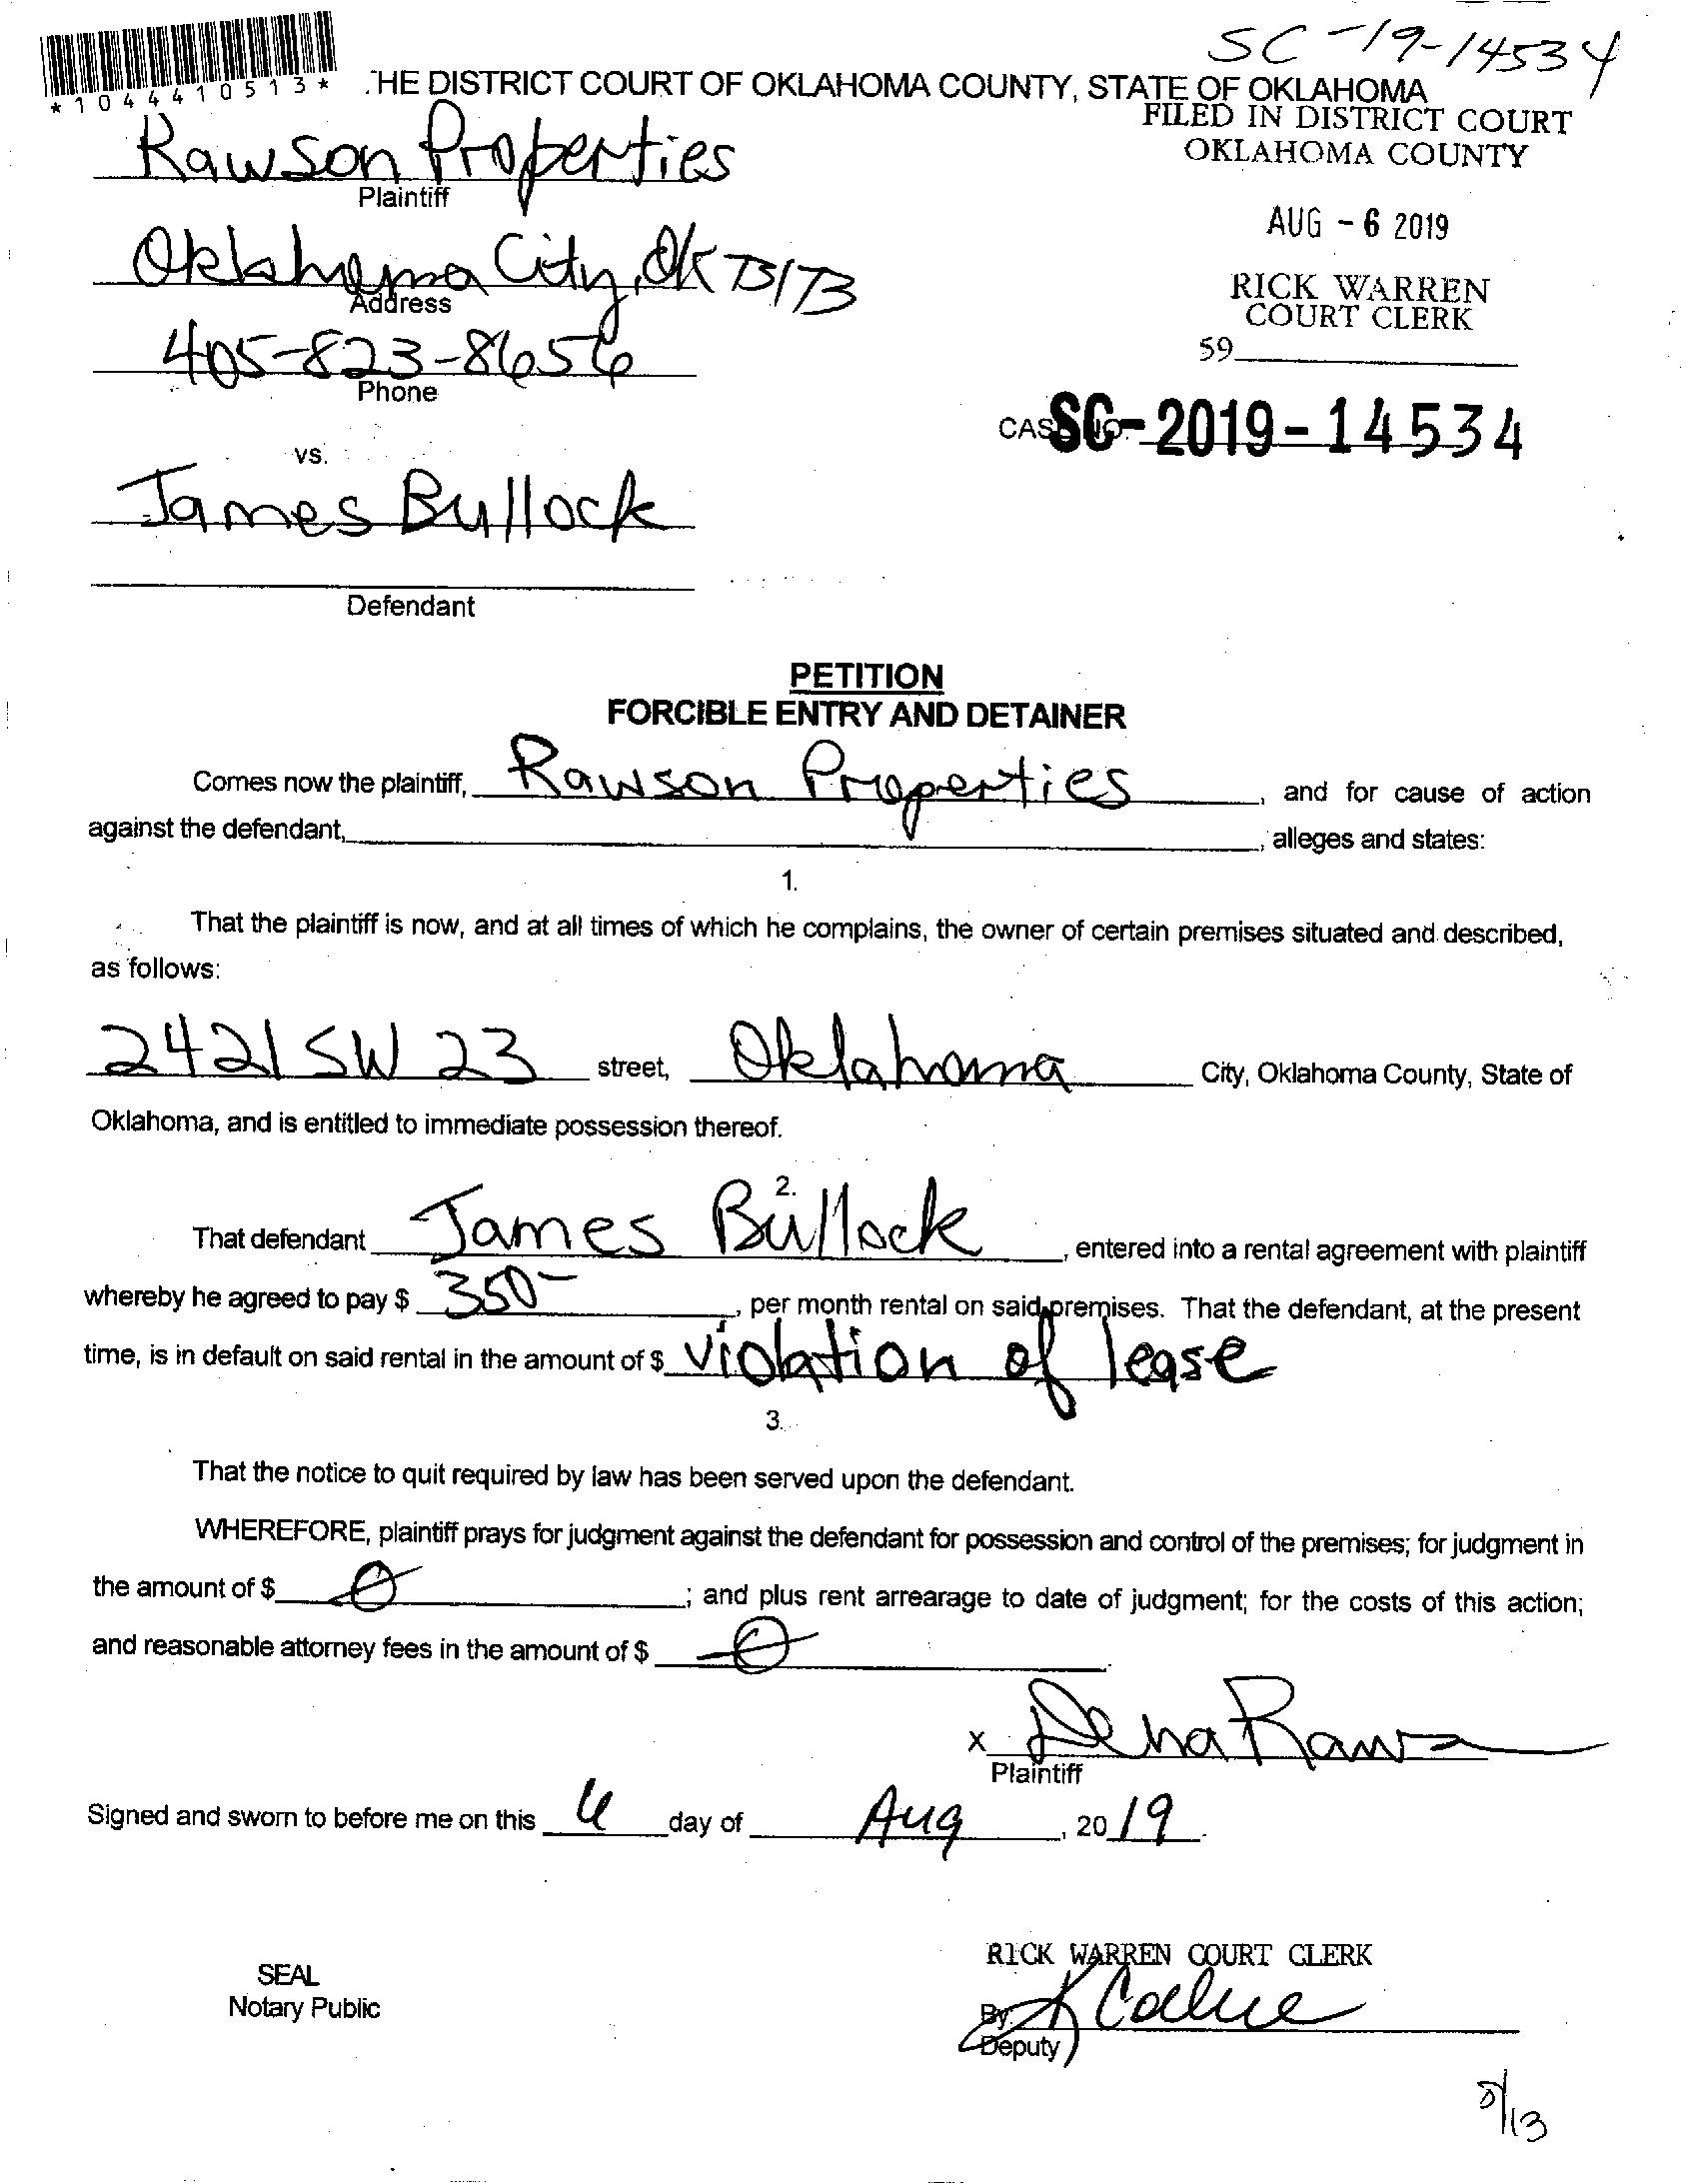 SC-19-14534
*1044410513*
THE DISTRICT COURT OF OKLAHOMA COUNTY, STATE OF OKLAHOMA
FILED IN DISTRICT COURT
OKLAHOMA COUNTY
Rawson Properties
Plaintiff
AUG - 6 2019
Oklahoma City, OK 73173
Address
RICK WARREN
COURT CLERK
405-823-8656
Phone
59
CASE NO. SC-2019-14534
vs.
James Bullock
Defendant
PETITION
FORCIBLE ENTRY AND DETAINER
Comes now the plaintiff, Rawson Properties, and for cause of action
against the defendant, , alleges and states:
1.
That the plaintiff is now, and at all times of which he complains, the owner of certain premises situated and described,
as follows:
2421 SW 23 street, Oklahoma City, Oklahoma County, State of
Oklahoma, and is entitled to immediate possession thereof.
2.
That defendant James Bullock, entered into a rental agreement with plaintiff
whereby he agreed to pay $ 350-, per month rental on said premises. That the defendant, at the present
time, is in default on said rental in the amount of $ violation of lease
3.
That the notice to quit required by law has been served upon the defendant.
WHEREFORE, plaintiff prays for judgment against the defendant for possession and control of the premises; for judgment in
the amount of $ 0; and plus rent arrearage to date of judgment; for the costs of this action;
and reasonable attorney fees in the amount of $ 0.
x Dena Raws
Plaintiff
Signed and sworn to before me on this 6 day of Aug, 2019.
RICK WARREN COURT CLERK
SEAL
Notary Public
By:
Deputy
8/13